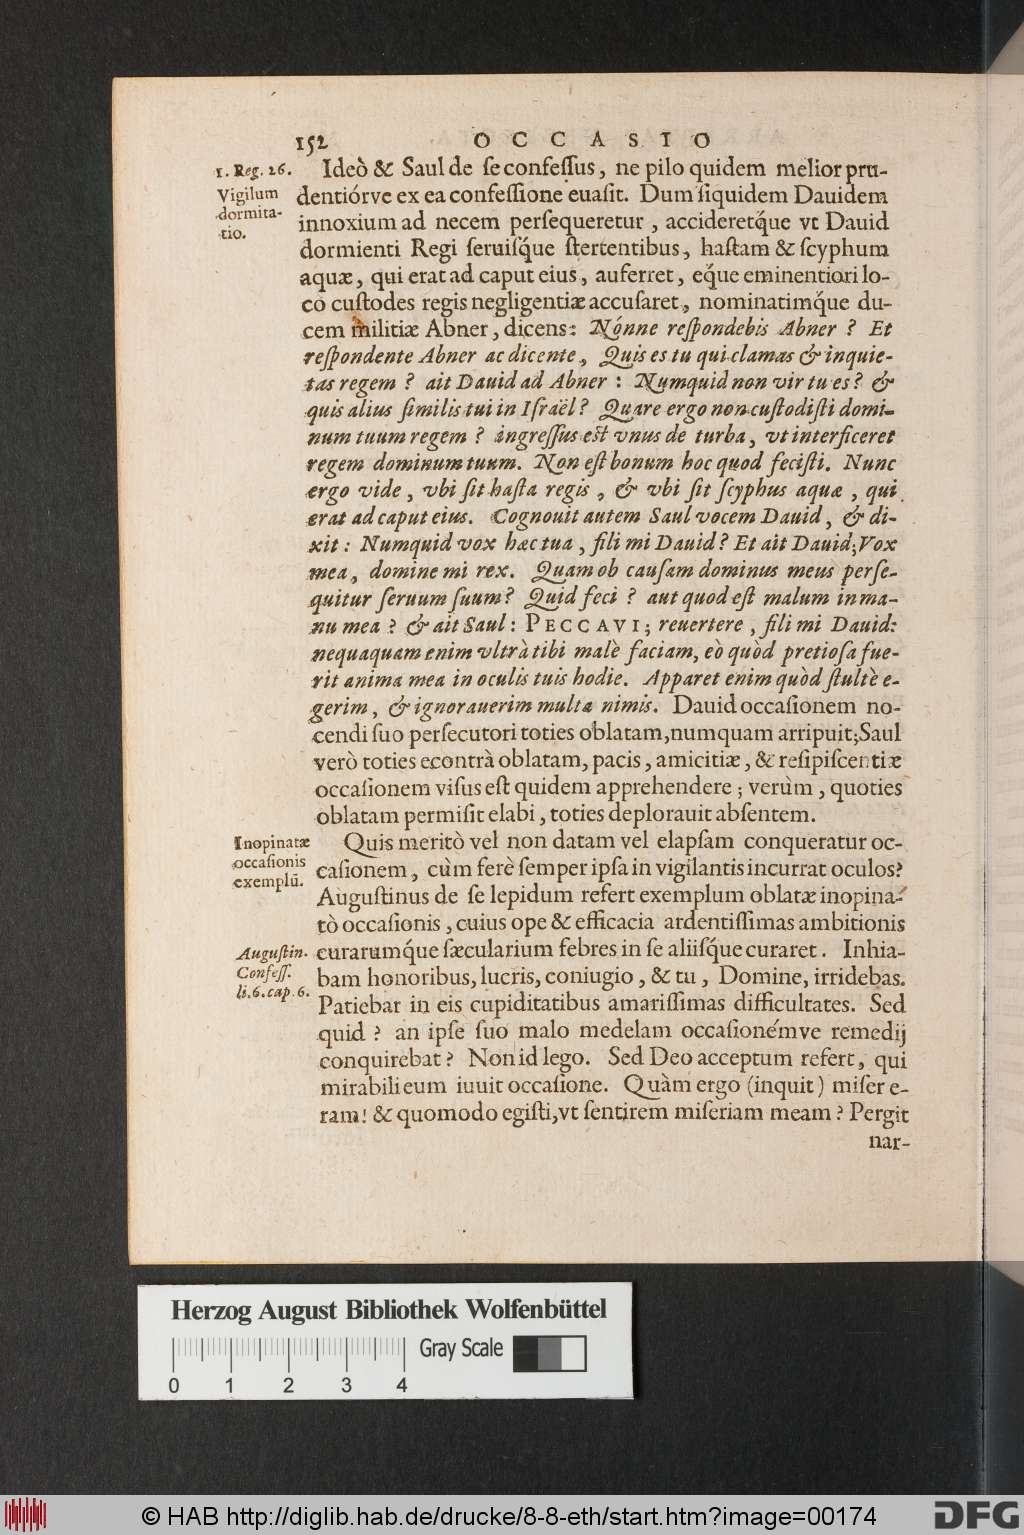 152 OCCASIO
1. Reg. 26.
Vigilum
dormita-
tio.
Ideò & Saul de se confessus, ne pilo quidem melior pru-
dentiórve ex ea confessione euasit. Dum siquidem Dauidem
innoxium ad necem persequeretur, accideretq́ue vt Dauid
dormienti Regi seruisq́ue stertentibus, hastam & scyphum
aquæ, qui erat ad caput eius, auferret, eq́ue eminentiori lo-
co custodes regis negligentiæ accusaret, nominatimq́ue du-
cem militiæ Abner, dicens: Nónne respondebis Abner? Et
respondente Abner ac dicente, Quis es tu qui clamas & inquie-
tas regem? ait Dauid ad Abner: Numquid non vir tu es? &
quis alius similis tui in Israël? Quare ergo non custodisti domi-
num tuum regem? ingressus est vnus de turba, vt interficeret
regem dominum tuum. Non est bonum hoc quod fecisti. Nunc
ergo vide, vbi sit hasta regis, & vbi sit scyphus aquæ, qui
erat ad caput eius. Cognouit autem Saul vocem Dauid, & di-
xit: Numquid vox hæc tua, fili mi Dauid? Et ait Dauid; Vox
mea, domine mi rex. Quam ob causam dominus meus perse-
quitur seruum suum? Quid feci? aut quod est malum in ma-
nu mea? & ait Saul: PECCAVI; reuertere, fili mi Dauid:
nequaquam enim vltrà tibi malè faciam, eò quòd pretiosa fue-
rit anima mea in oculis tuis hodie. Apparet enim quòd stultè e-
gerim, & ignorauerim multa nimis. Dauid occasionem no-
cendi suo persecutori toties oblatam, numquam arripuit; Saul
verò toties econtrà oblatam, pacis, amicitiæ, & resipiscentiæ
occasionem visus est quidem apprehendere; verùm, quoties
oblatam permisit elabi, toties deplorauit absentem.
Inopinatæ
occasionis
exemplū.
Quis meritò vel non datam vel elapsam conqueratur oc-
casionem, cùm ferè semper ipsa in vigilantis incurrat oculos?
Augustinus de se lepidum refert exemplum oblatæ inopina-
tò occasionis, cuius ope & efficacia ardentissimas ambitionis
Augustin.
Confess.
li. 6. cap. 6.
curarumq́ue sæcularium febres in se aliisq́ue curaret. Inhia-
bam honoribus, lucris, coniugio, & tu, Domine, irridebas.
Patiebar in eis cupiditatibus amarissimas difficultates. Sed
quid? an ipse suo malo medelam occasionémve remedij
conquirebat? Non id lego. Sed Deo acceptum refert, qui
mirabili eum iuuit occasione. Quàm ergo (inquit) miser e-
ram! & quomodo egisti, vt sentirem miseriam meam? Pergit
nar-
Herzog August Bibliothek Wolfenbüttel
Gray Scale
0 1 2 3 4
© HAB http://diglib.hab.de/drucke/8-8-eth/start.htm?image=00174
DFG